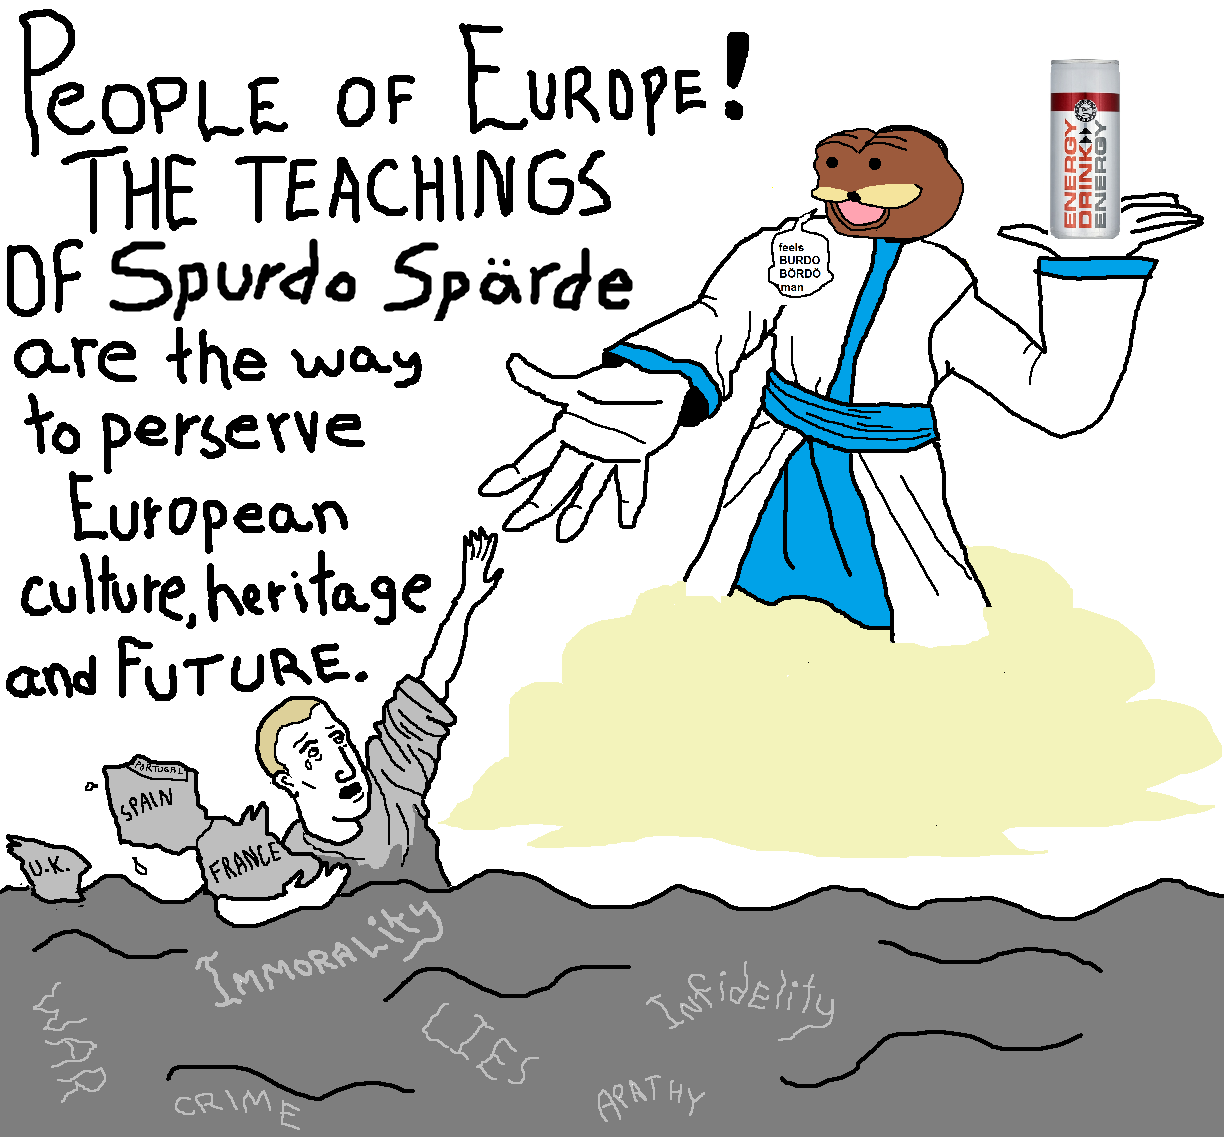 PEOPLE OF EUROPE!
THE TEACHINGS
OF Spurdo Spärde
are the way
to perserve
European
culture, heritage
and FUTURE.
feels
BURDO
BÖRDÖ
man
ENERGY
DRINK
ENERGY
PORTUGAL
SPAIN
U.K.
FRANCE
IMMORALITY
WAR
LIES
INFIDELITY
CRIME
APATHY